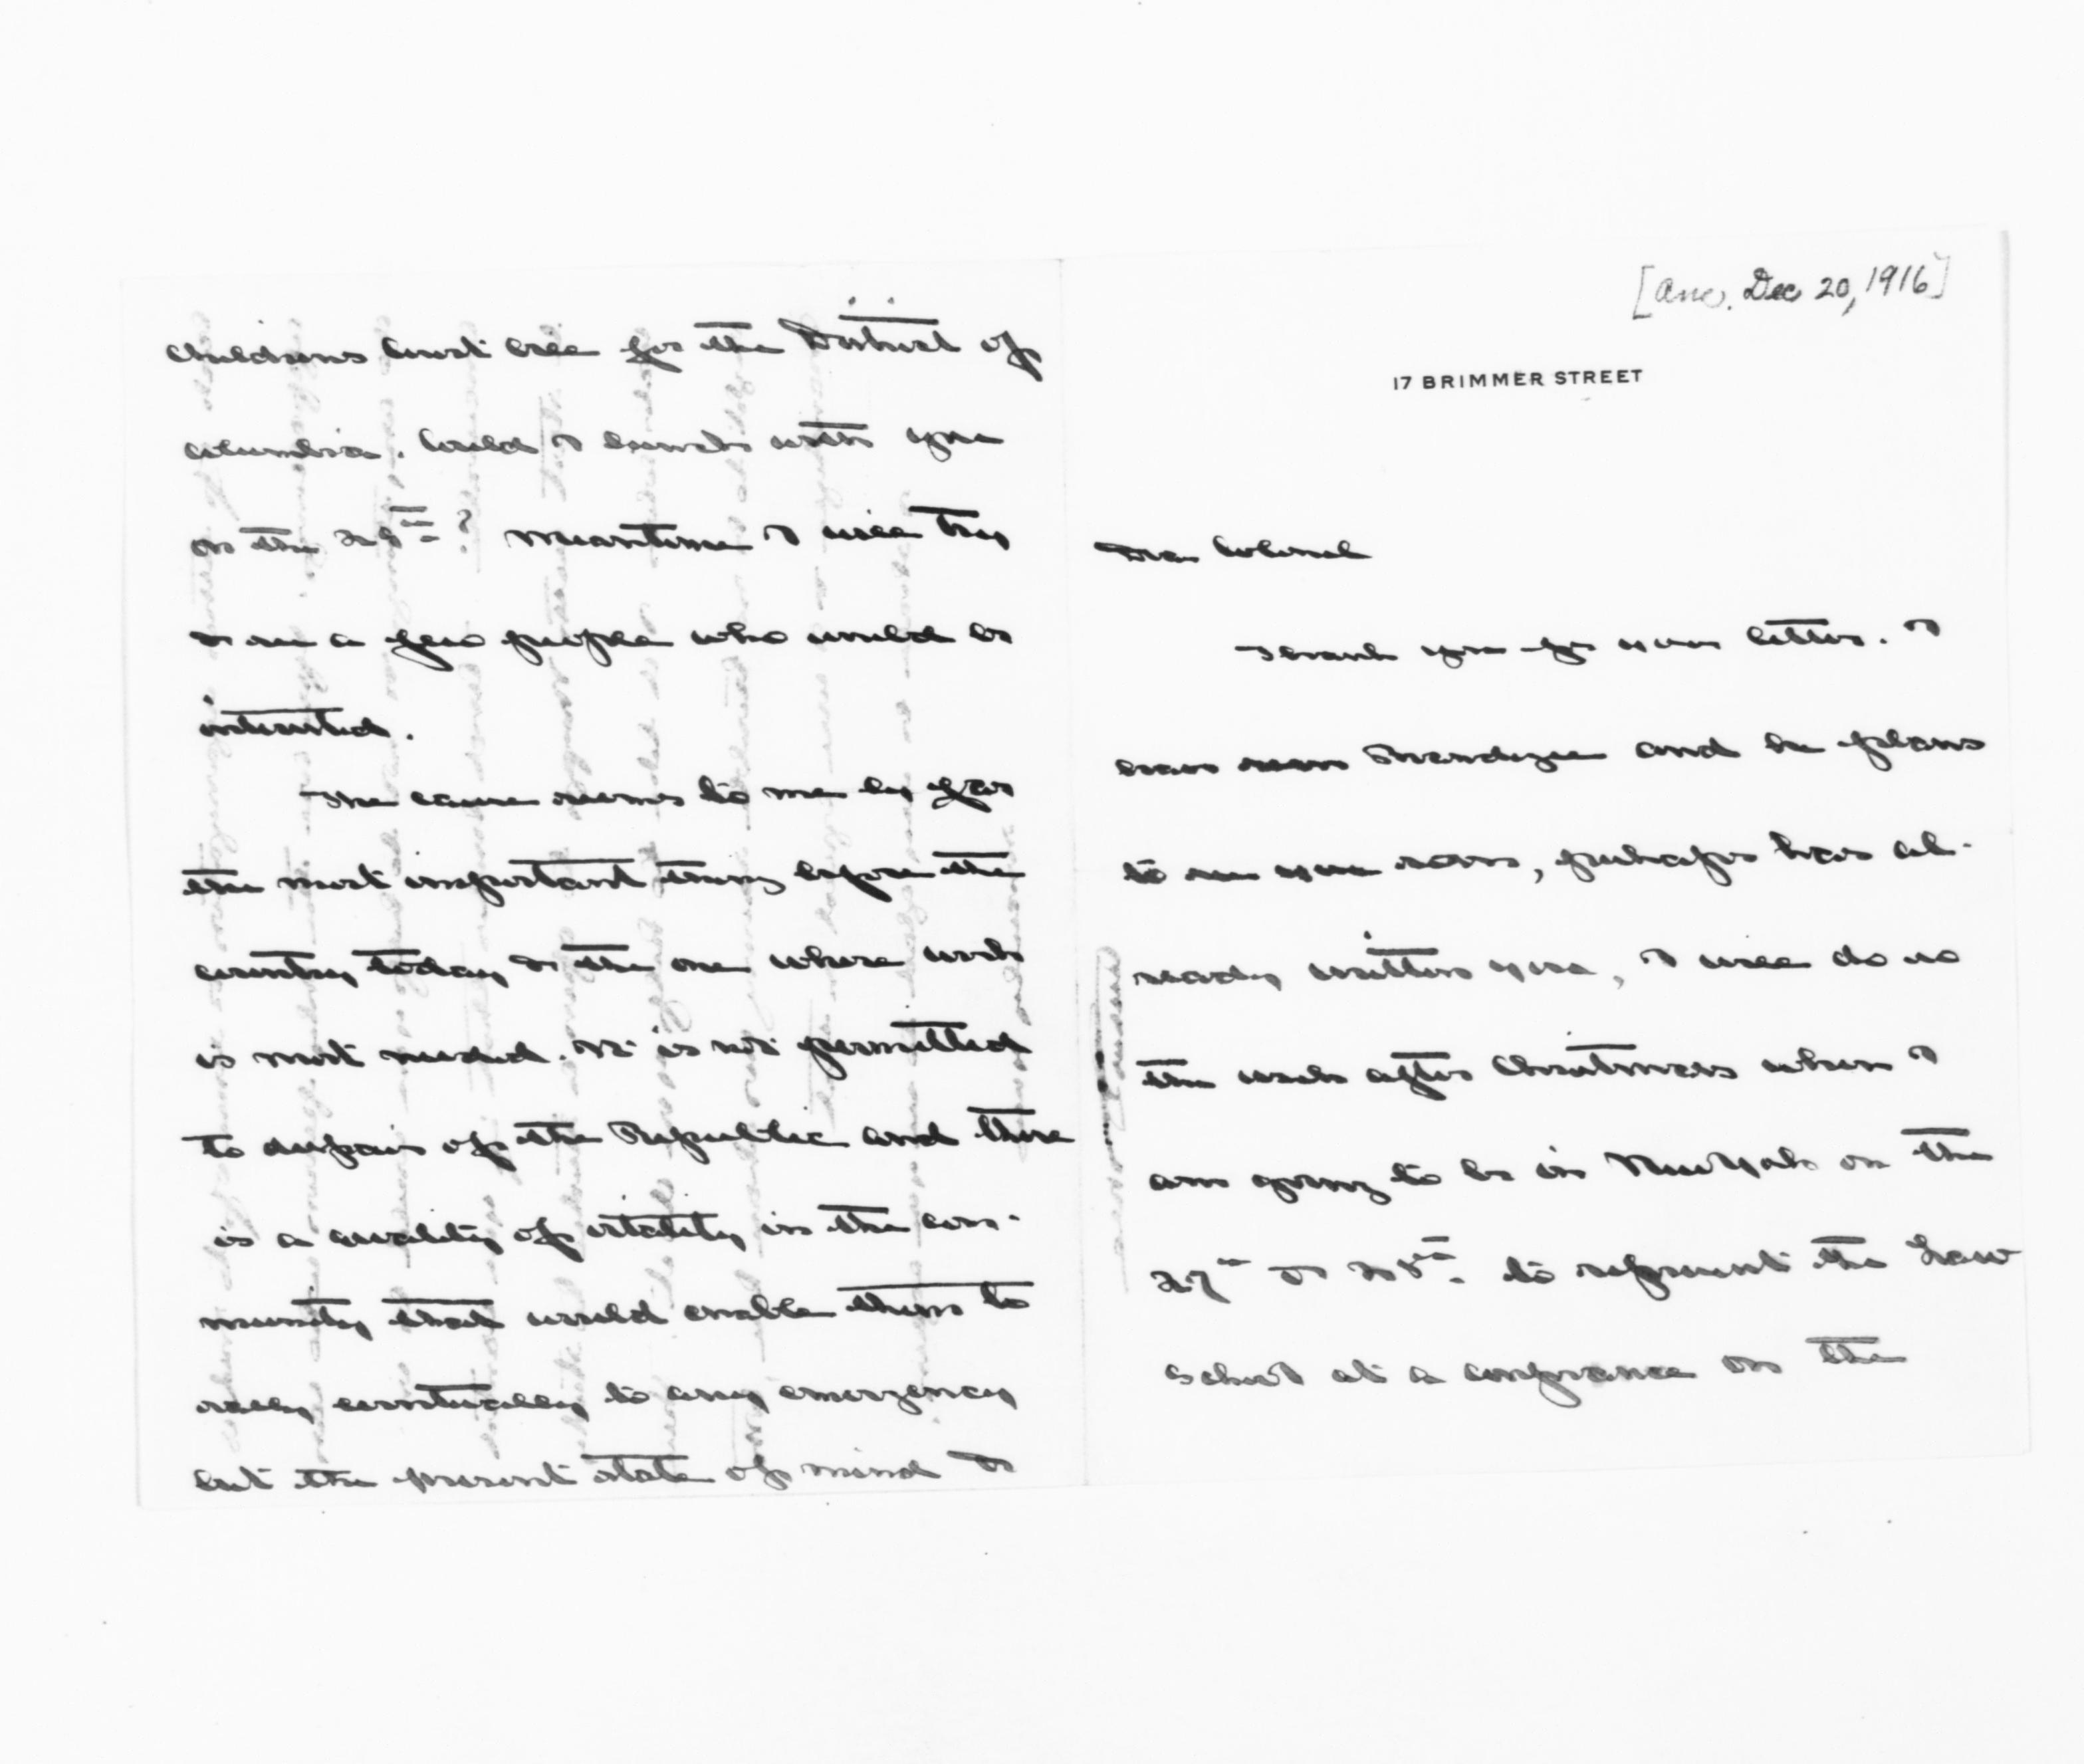 [Anc. Dec 20, 1916]
17 BRIMMER STREET
Dear Colonel
Thank you for your letter. I
have seen Brandegee and he plans
to see you soon, perhaps has al-
ready written you, I will do so
the week after Christmas when I
am going to be in New York on the
27th & 28th. to represent the Law
School at a conference on the
childrens court bill for the District of
Columbia. Could I lunch with you
on the 28th? Meantime I will try
& see a few people who would be
interested.
The cause seems to me by far
the most important thing before the
country today & the one where work
is most needed. It is not permitted
to despair of the Republic and there
is a quality of vitality in the com-
munity that would enable them to
rally eventually to any emergency
but the present state of mind &